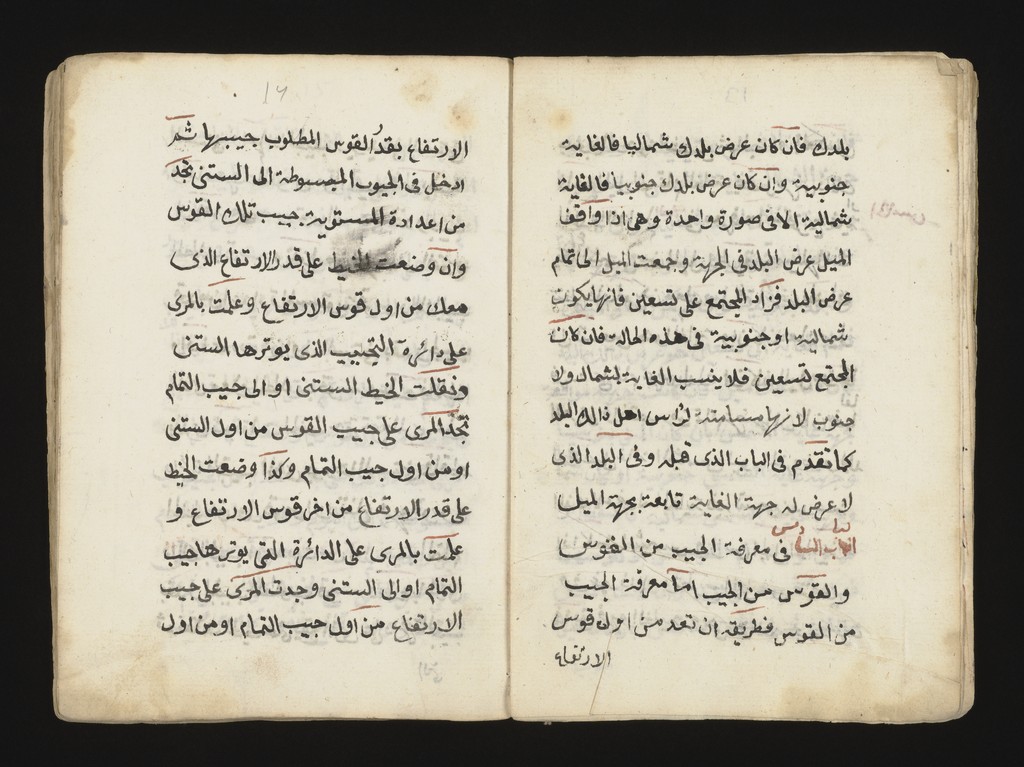 بلدك فان كان عرض بلدك شماليا فالغاية
جنوبية وان كان عرض بلدك جنوبيا فالغاية
شمالية الا فى صورة واحدة وهى اذا وافق
الميل عرض البلد فى الجهة وجمعت الميل الى تمام
عرض البلد فزاد المجتمع على تسعين فانها يكون
شمالية او جنوبية فى هذه الحالة فان كان
المجتمع تسعين فلا ينسب الغاية لشمال ولا
جنوب لانها مسامتة لرأس اهل ذالك البلد
كما تقدم فى الباب الذى قبله وفى البلد الذى
لا عرض له جهة الغاية تابعة بجهة الميل
الباب السادس فى معرفة الجيب من القوس
والقوس من الجيب اما معرفة الجيب
من القوس فطريقه ان تعد من اول قوس
الارتفاع
١٦
الارتفاع بقدر القوس المطلوب جيبها ثم
ادخل فى الجيوب المبسوطة الى الستنى تجد
من اعدادة المستوية جيب تلك القوس
وان وضعت الخيط على قدر الارتفاع الذى
معك من اول قوس الارتفاع وعلمت بالمرى
على دائرة التجييب الذى يوترها الستنى
ونقلت الخيط الستنى او الى جيب التمام
تجد المرى على جيب القوس من اول الستنى
او من اول جيب التمام وكذا وضعت الخيط
على قدر الارتفاع من اخر قوس الارتفاع و
علمت بالمرى على الدائرة التى يوترها جيب
التمام او الى الستنى وجدت المرى على جيب
الارتفاع من اول جيب التمام او من اول